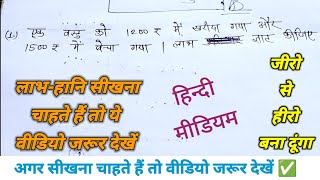 (1) एक वस्तु को 1200 ₹ में खरीदा गया और
1500 ₹ में बेचा गया । लाभ ज्ञात कीजिए
लाभ-हानि सीखना
चाहते हैं तो ये
वीडियो जरूर देखें
हिन्दी
मीडियम
जीरो
से
हीरो
बना दूंगा
अगर सीखना चाहते हैं तो वीडियो जरूर देखें ✅